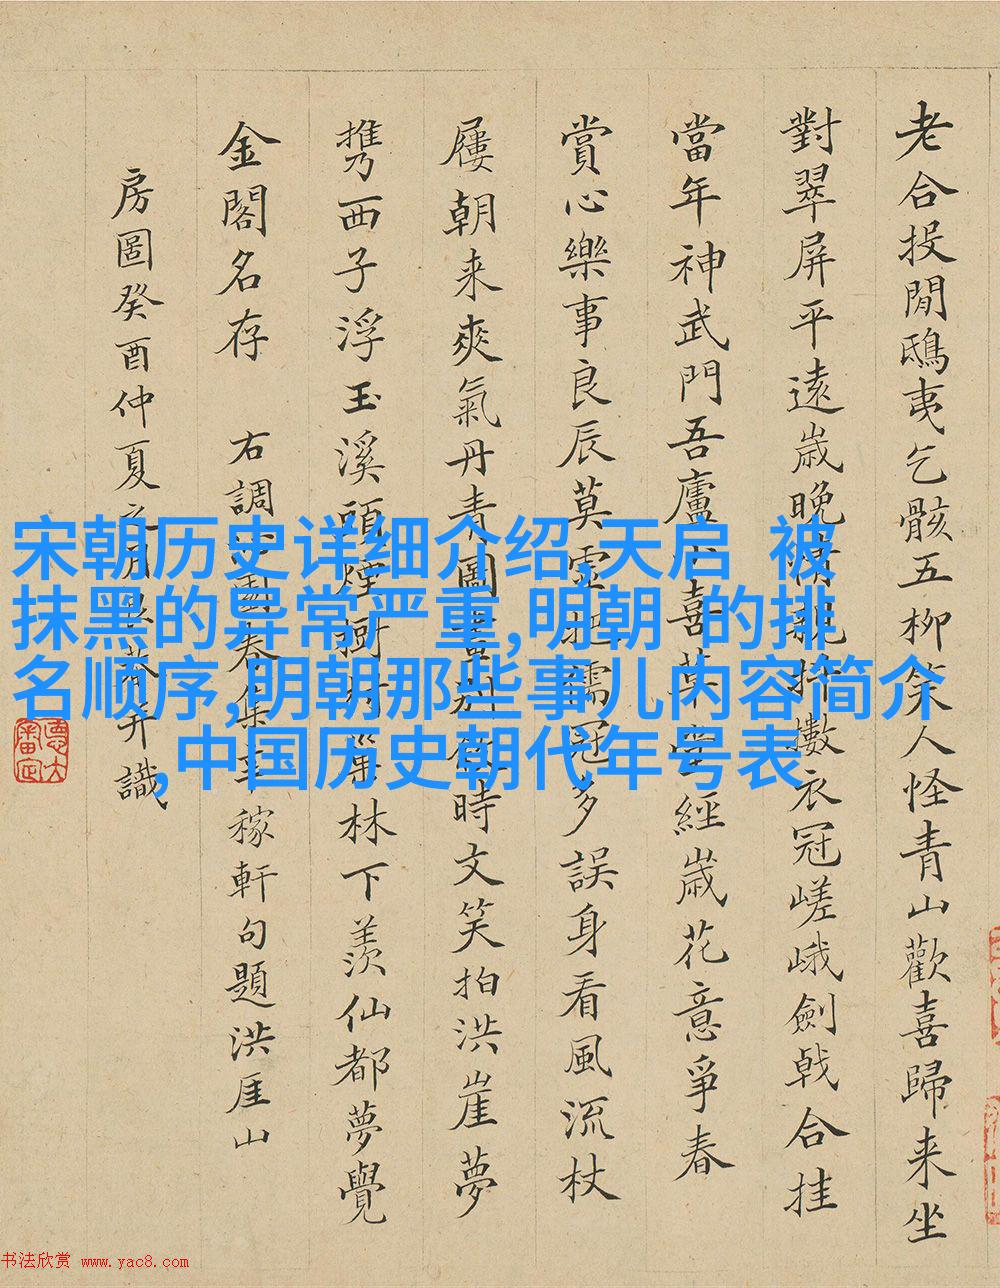 老合投閒鴟夷乞骸五柳笑人怪青山歡喜歸来坐
對翠屏平遠歲晚情親數衣冠嵯峨劍戟合挂
當年神武門吾廬小喜草堂經歲花意爭春
賞心樂事良辰莫虛把儒冠多誤身看風流杖
屨朝来爽氣丹青圖畫別時文笑拍洪崖夢
携西子浮玉溪頭煙樹巢林下羨仙都夢覺
金閣名存 右調沁園春集辛稼軒句題洪厓山
房圖癸酉仲夏之月并識
宋朝历史详细介绍,天启 被
抹黑的异常严重,明朝 的排
名顺序,明朝那些事儿内容简介
,中国历史朝代年号表
书法欣赏 www.yac8.com